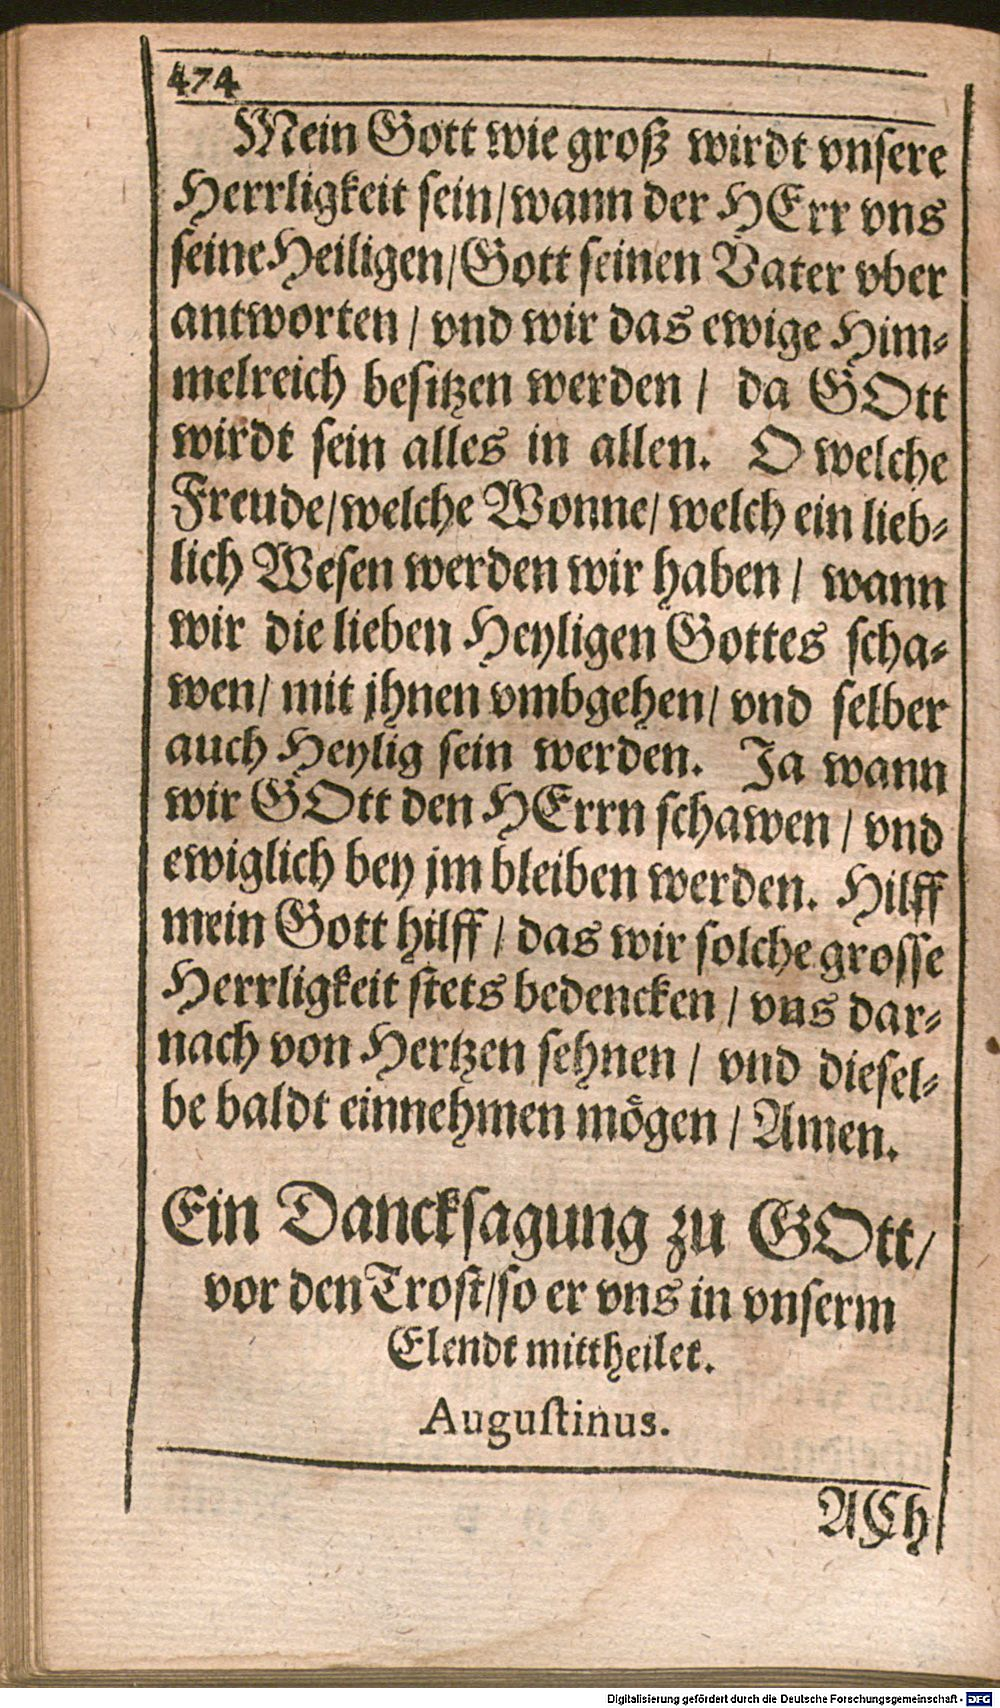 474
Mein Gott wie groß wirdt vnsere
Herrligkeit sein/wann der HErr vns
seine Heiligen/Gott seinen Vater vber
antworten / vnd wir das ewige Him⸗
melreich besitzen werden / da GOtt
wirdt sein alles in allen. O welche
Freude/welche Wonne/ welch ein lieb⸗
lich Wesen werden wir haben / wann
wir die lieben Heyligen Gottes scha⸗
wen/ mit jhnen vmbgehen/ vnd selber
auch Heylig sein werden. Ja wann
wir GOtt den HErrn schawen / vnd
ewiglich bey jm bleiben werden. Hilff
mein Gott hilff / das wir solche grosse
Herrligkeit stets bedencken / vns dar⸗
nach von Hertzen sehnen / vnd diesel⸗
be baldt einnehmen mögen / Amen.
Ein Dancksagung zu GOtt/
vor den Trost/so er vns in vnserm
Elendt mittheilet.
Augustinus.
ACh
Digitalisierung gefördert durch die Deutsche Forschungsgemeinschaft - DFG